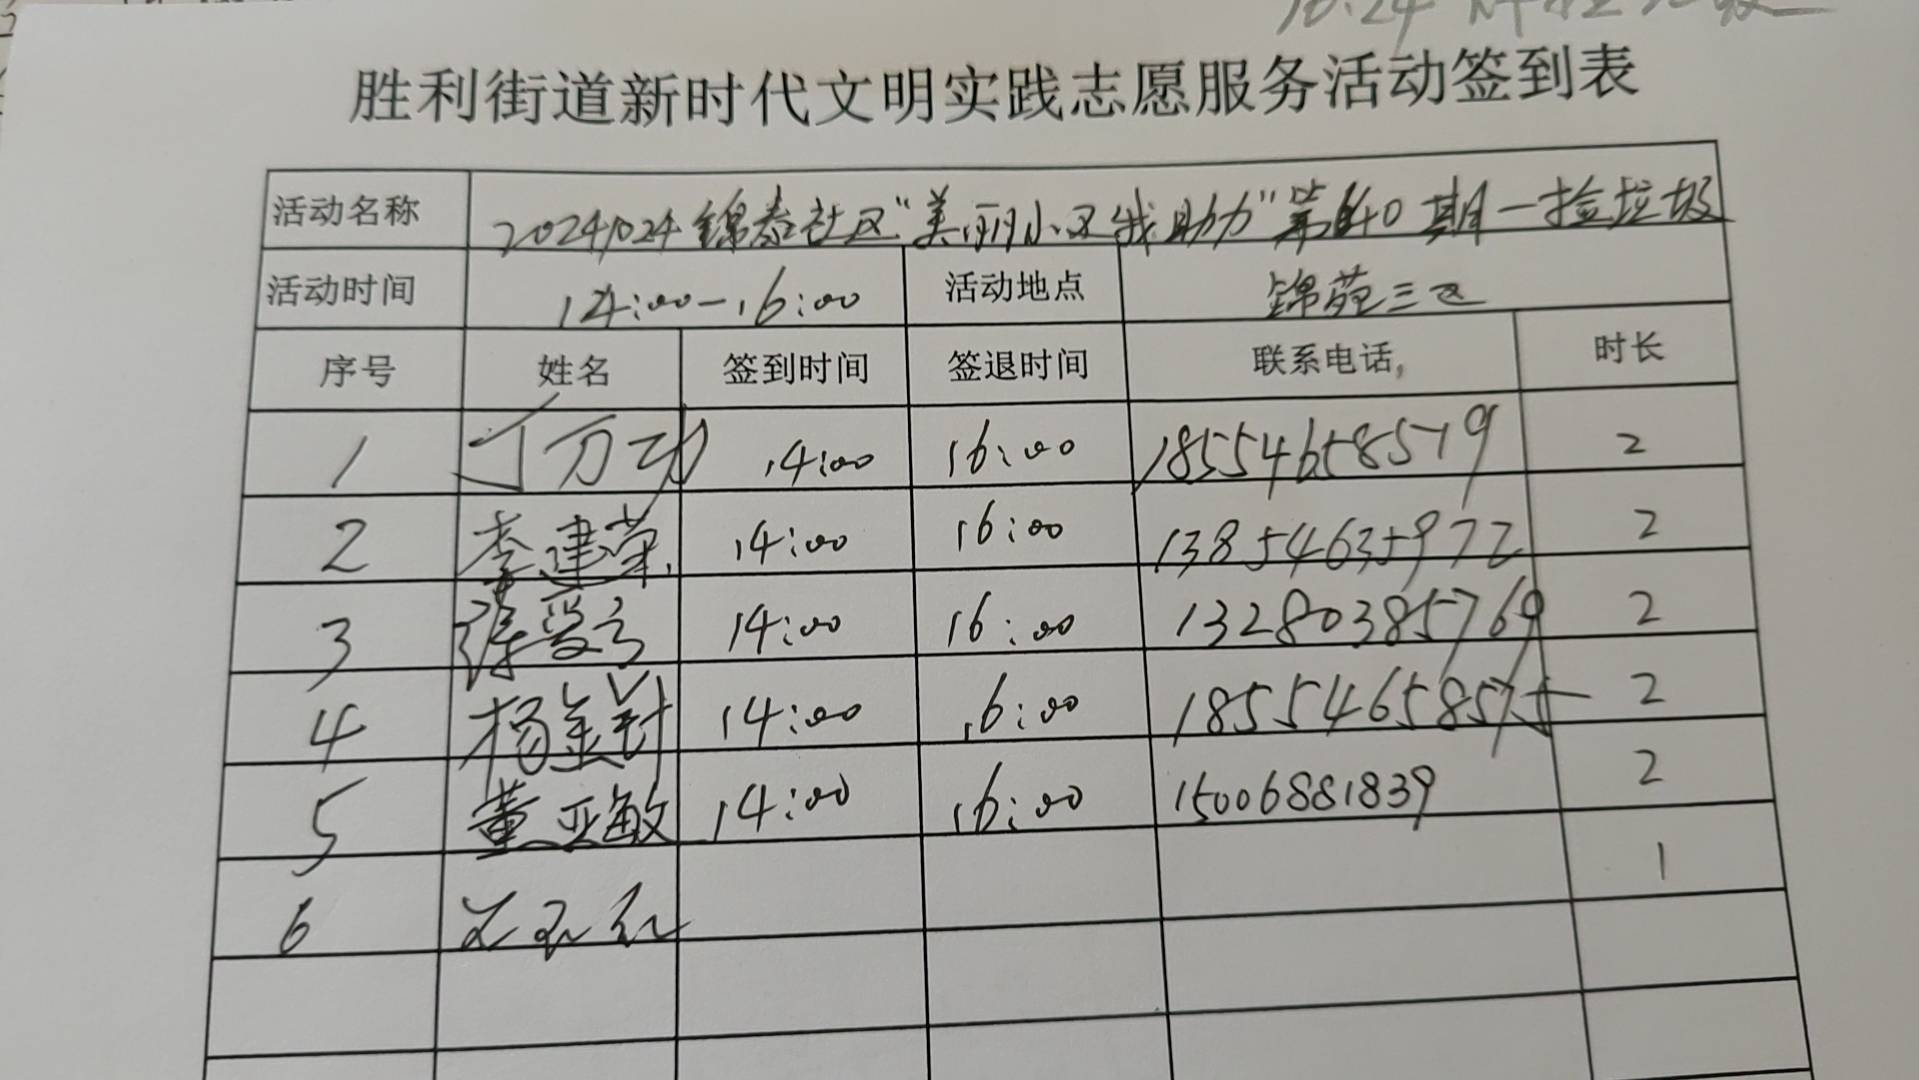 10.24
胜利街道新时代文明实践志愿服务活动签到表
活动名称 20241024锦泰社区“美丽小区我助力”第40期—捡垃圾
活动时间 14:00-16:00 活动地点 锦苑三区
序号 姓名 签到时间 签退时间 联系电话, 时长
1 丁万功 14:00 16:00 18554658519 2
2 李建荣 14:00 16:00 13854635972 2
3 14:00 16:00 13280385769 2
4 杨金针 14:00 16:00 18554658575 2
5 董亚敏 14:00 16:00 15006881839 2
6 1